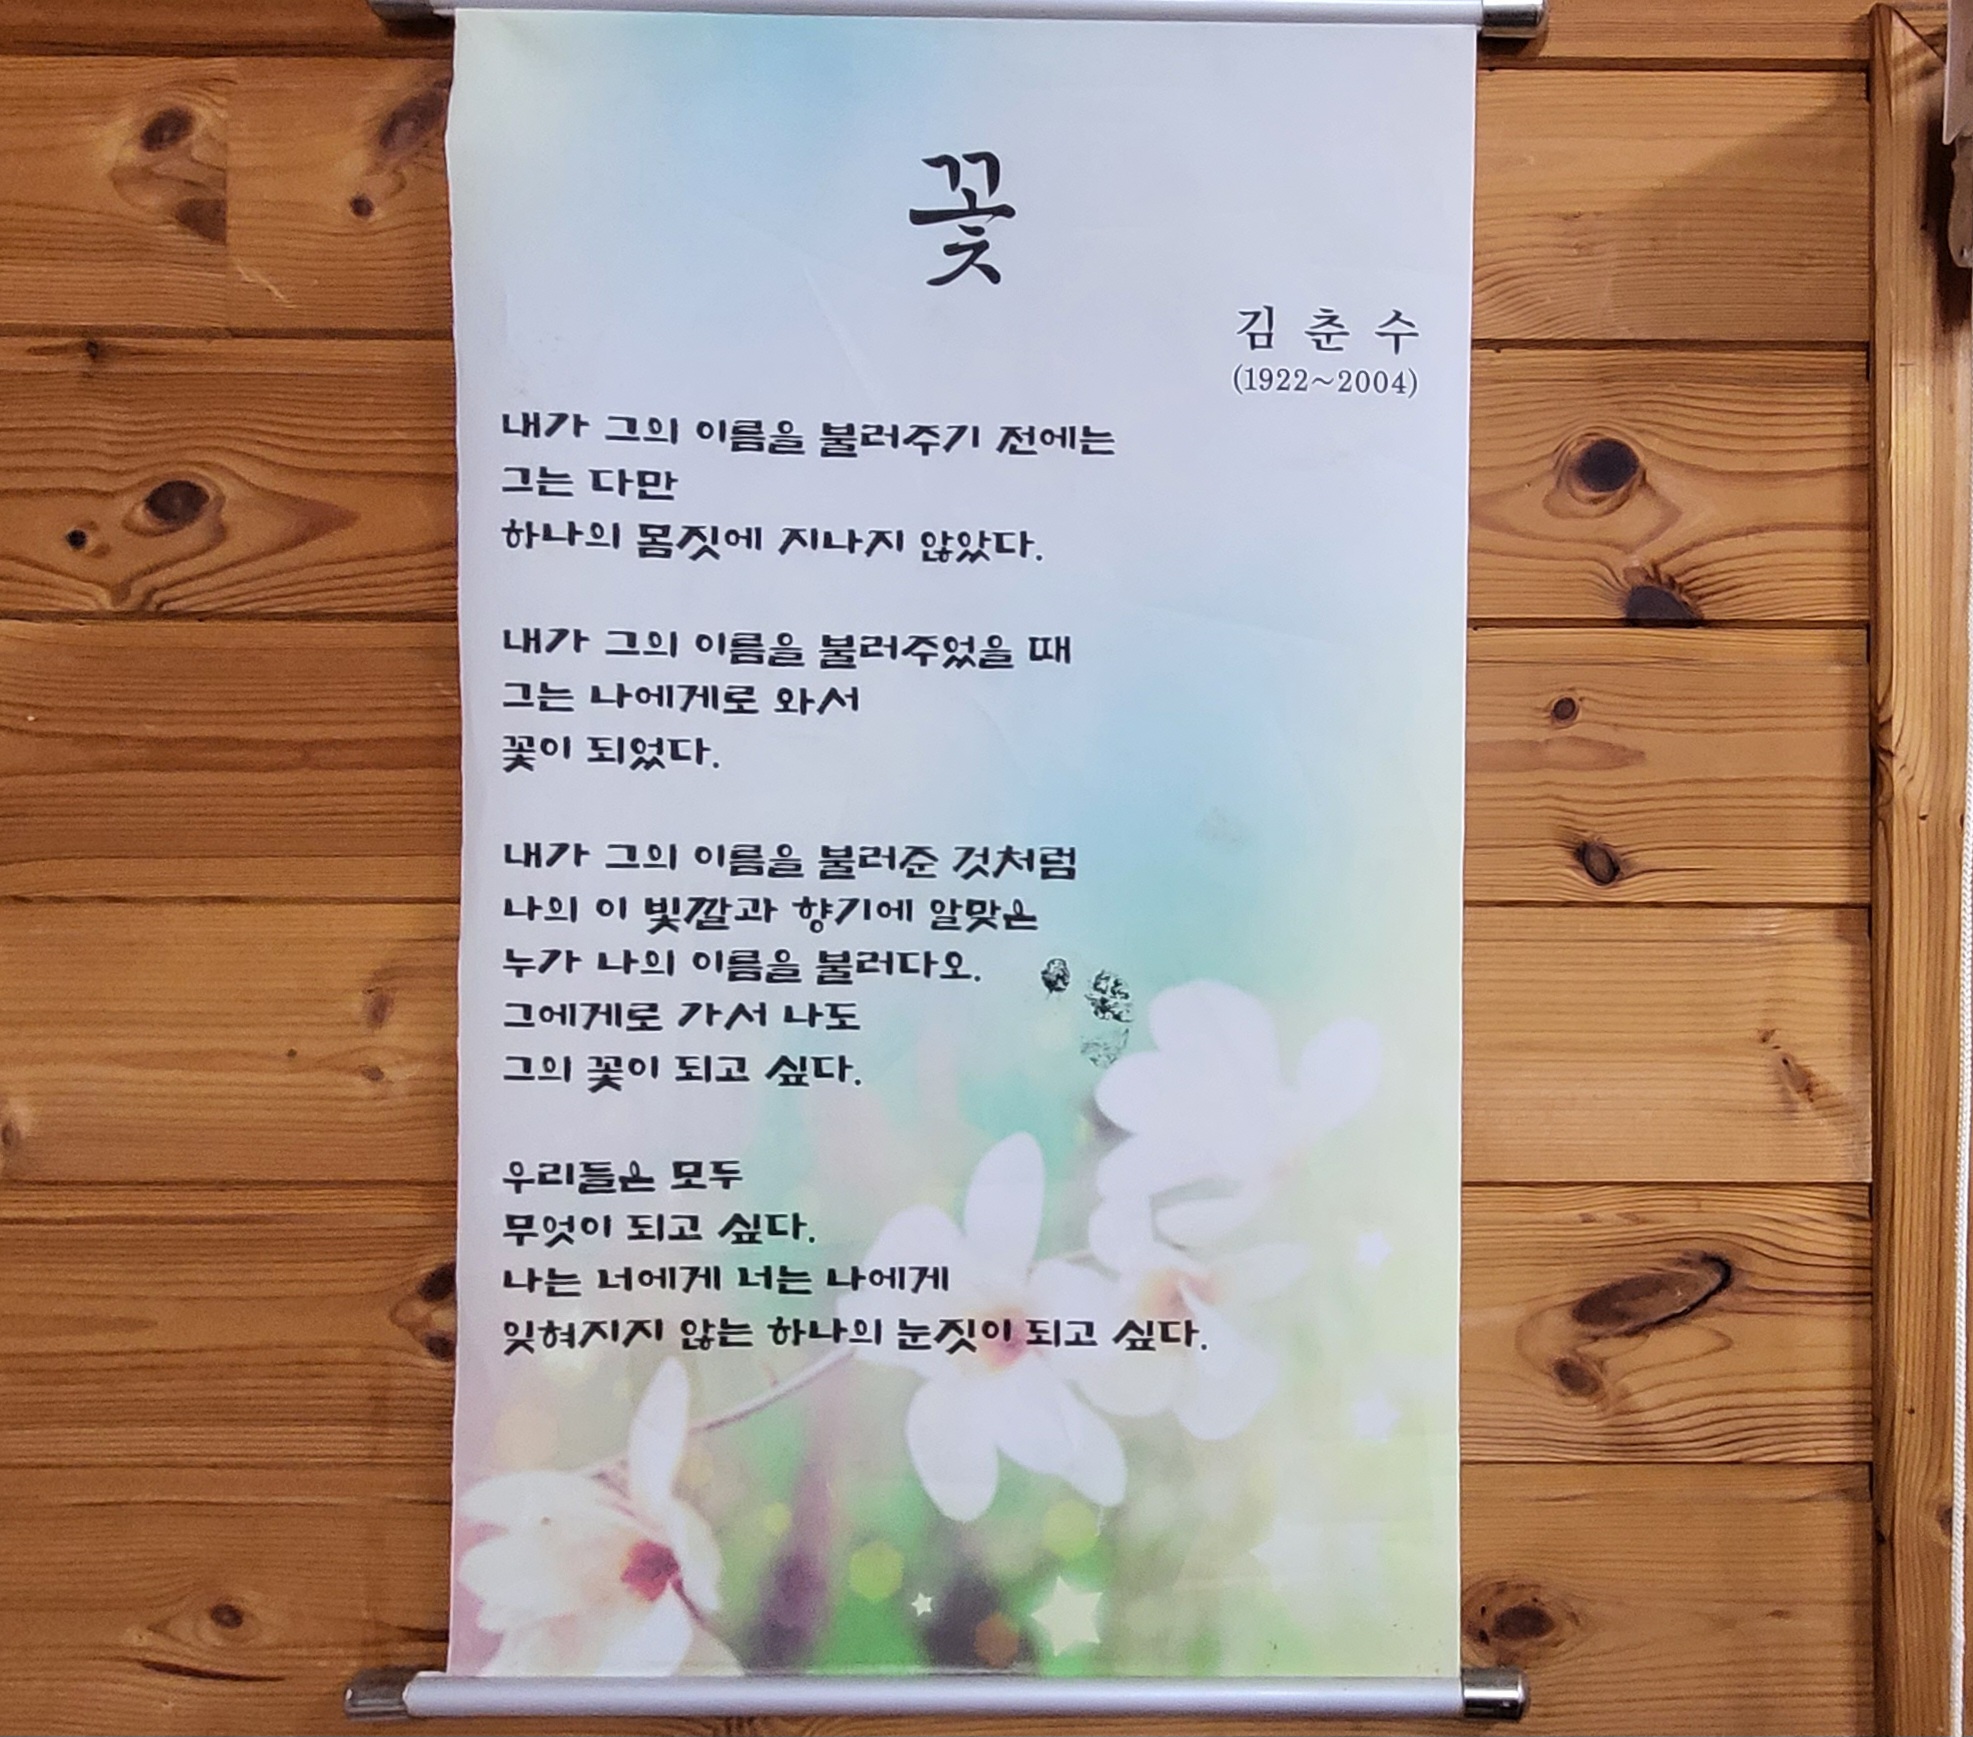 꽃
김 춘 수
(1922~2004)
내가 그의 이름을 불러주기 전에는
그는 다만
하나의 몸짓에 지나지 않았다.
내가 그의 이름을 불러주었을 때
그는 나에게로 와서
꽃이 되었다.
내가 그의 이름을 불러준 것처럼
나의 이 빛깔과 향기에 알맞은
누가 나의 이름을 불러다오.
그에게로 가서 나도
그의 꽃이 되고 싶다.
우리들은 모두
무엇이 되고 싶다.
나는 너에게 너는 나에게
잊혀지지 않는 하나의 눈짓이 되고 싶다.